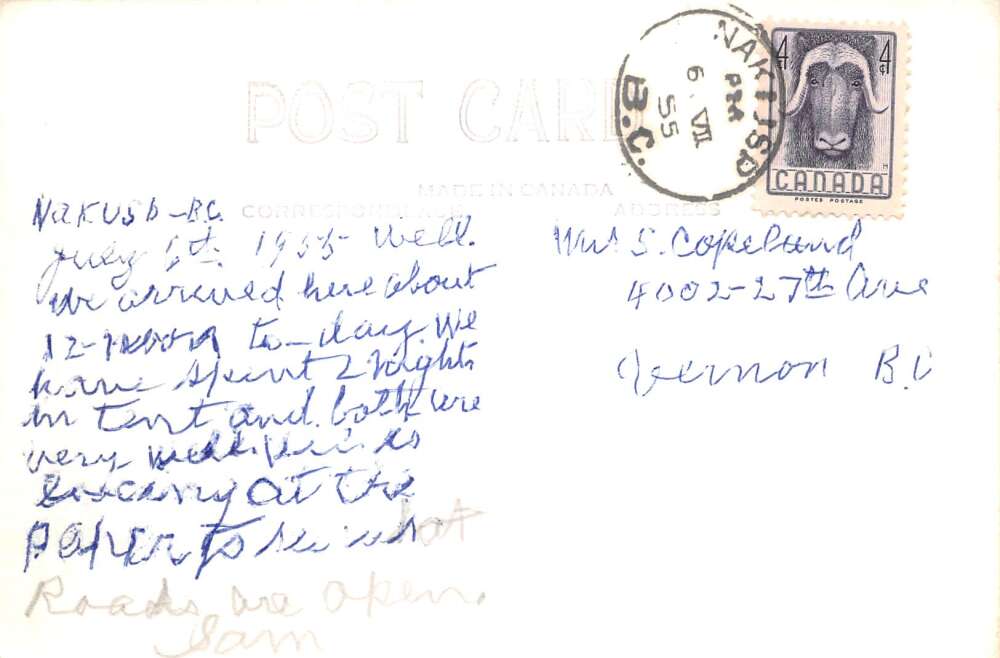 POST CARD
MADE IN CANADA
CORRESPONDENCE
ADDRESS
NAKUSP
PM
6 VII
55
B.C.
4¢ 4¢
CANADA
POSTES POSTAGE
NAKUSP-B.C.
July 6th. 1955 Well.
we arrived here about
12-noon to-day. We
have spent 2 nights
in tent and both were
very well.
looking at the
paper to see what
Roads are open.
Sam
Mrs S. Copeland
4002-27th Ave
Vernon B.C